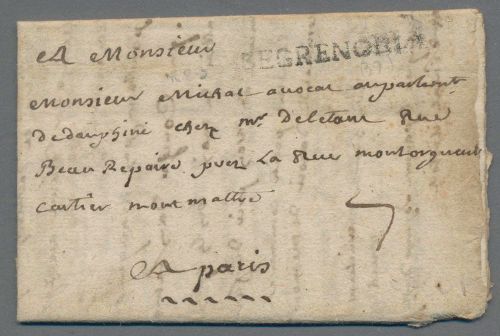 A Monsieur
DEGRENOBLE
Monsieur Michal avocat auparlent
de dauphiné chez mr. deletant Rue
Beau Repaire prez La Rue montorgueuil
cartier mont mattre
7
A paris